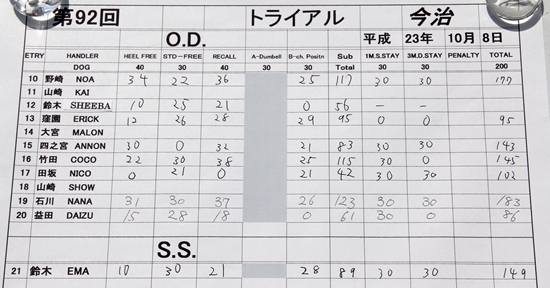 第92回 トライアル 今治
O.D. 平成 23年 10月 8日
ETRY HANDLER HEEL FREE STD-FREE RECALL A-Dumbell B-ch. Positn Sub 1M.S.STAY 3M.D.STAY PENALTY TOTAL
DOG 40 30 40 30 30 Total 30 30 200
10 野崎 NOA 34 22 36 25 117 30 30 177
11 山崎 KAI
12 鈴木 SHEEBA 10 25 21 0 56 - -
13 窪園 ERICK 12 26 28 29 95 0 0 95
14 大宮 MALON
15 四之宮 ANNON 30 0 32 21 83 30 30 143
16 竹田 COCO 22 30 38 25 115 30 0 145
17 田坂 NICO 0 21 0 21 42 30 30 102
18 山崎 SHOW
19 石川 NANA 31 30 37 26 123 30 30 183
20 益田 DAIZU 15 28 18 0 61 30 0 86
S.S.
21 鈴木 EMA 10 30 21 28 89 30 30 149